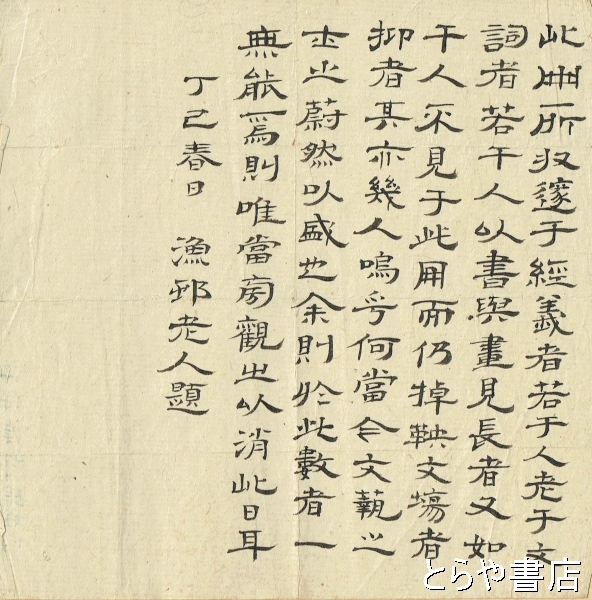 此冊所収邃于經義者若于人老于文
詞者若干人以書與畫見長者又如
干人不見于此冊而仍掉鞅文場者
抑者其亦幾人嗚乎何當今文藝之
士之蔚然以盛也余則於此數者一
無能焉則唯當旁觀之以消此日耳
丁巳春日 漁邨老人題
とらや書店